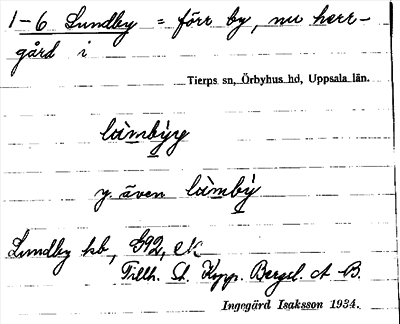 1-6 Lundby = förr by, nu herr-
gård i
Tierps sn, Örbyhus hd, Uppsala län.
làmbỳy
y. även làmbỳ
Lundby kb, S92, ek
Tillh. St. Kopp. Bergsl. A-B.
Ingegärd Isaksson 1934.